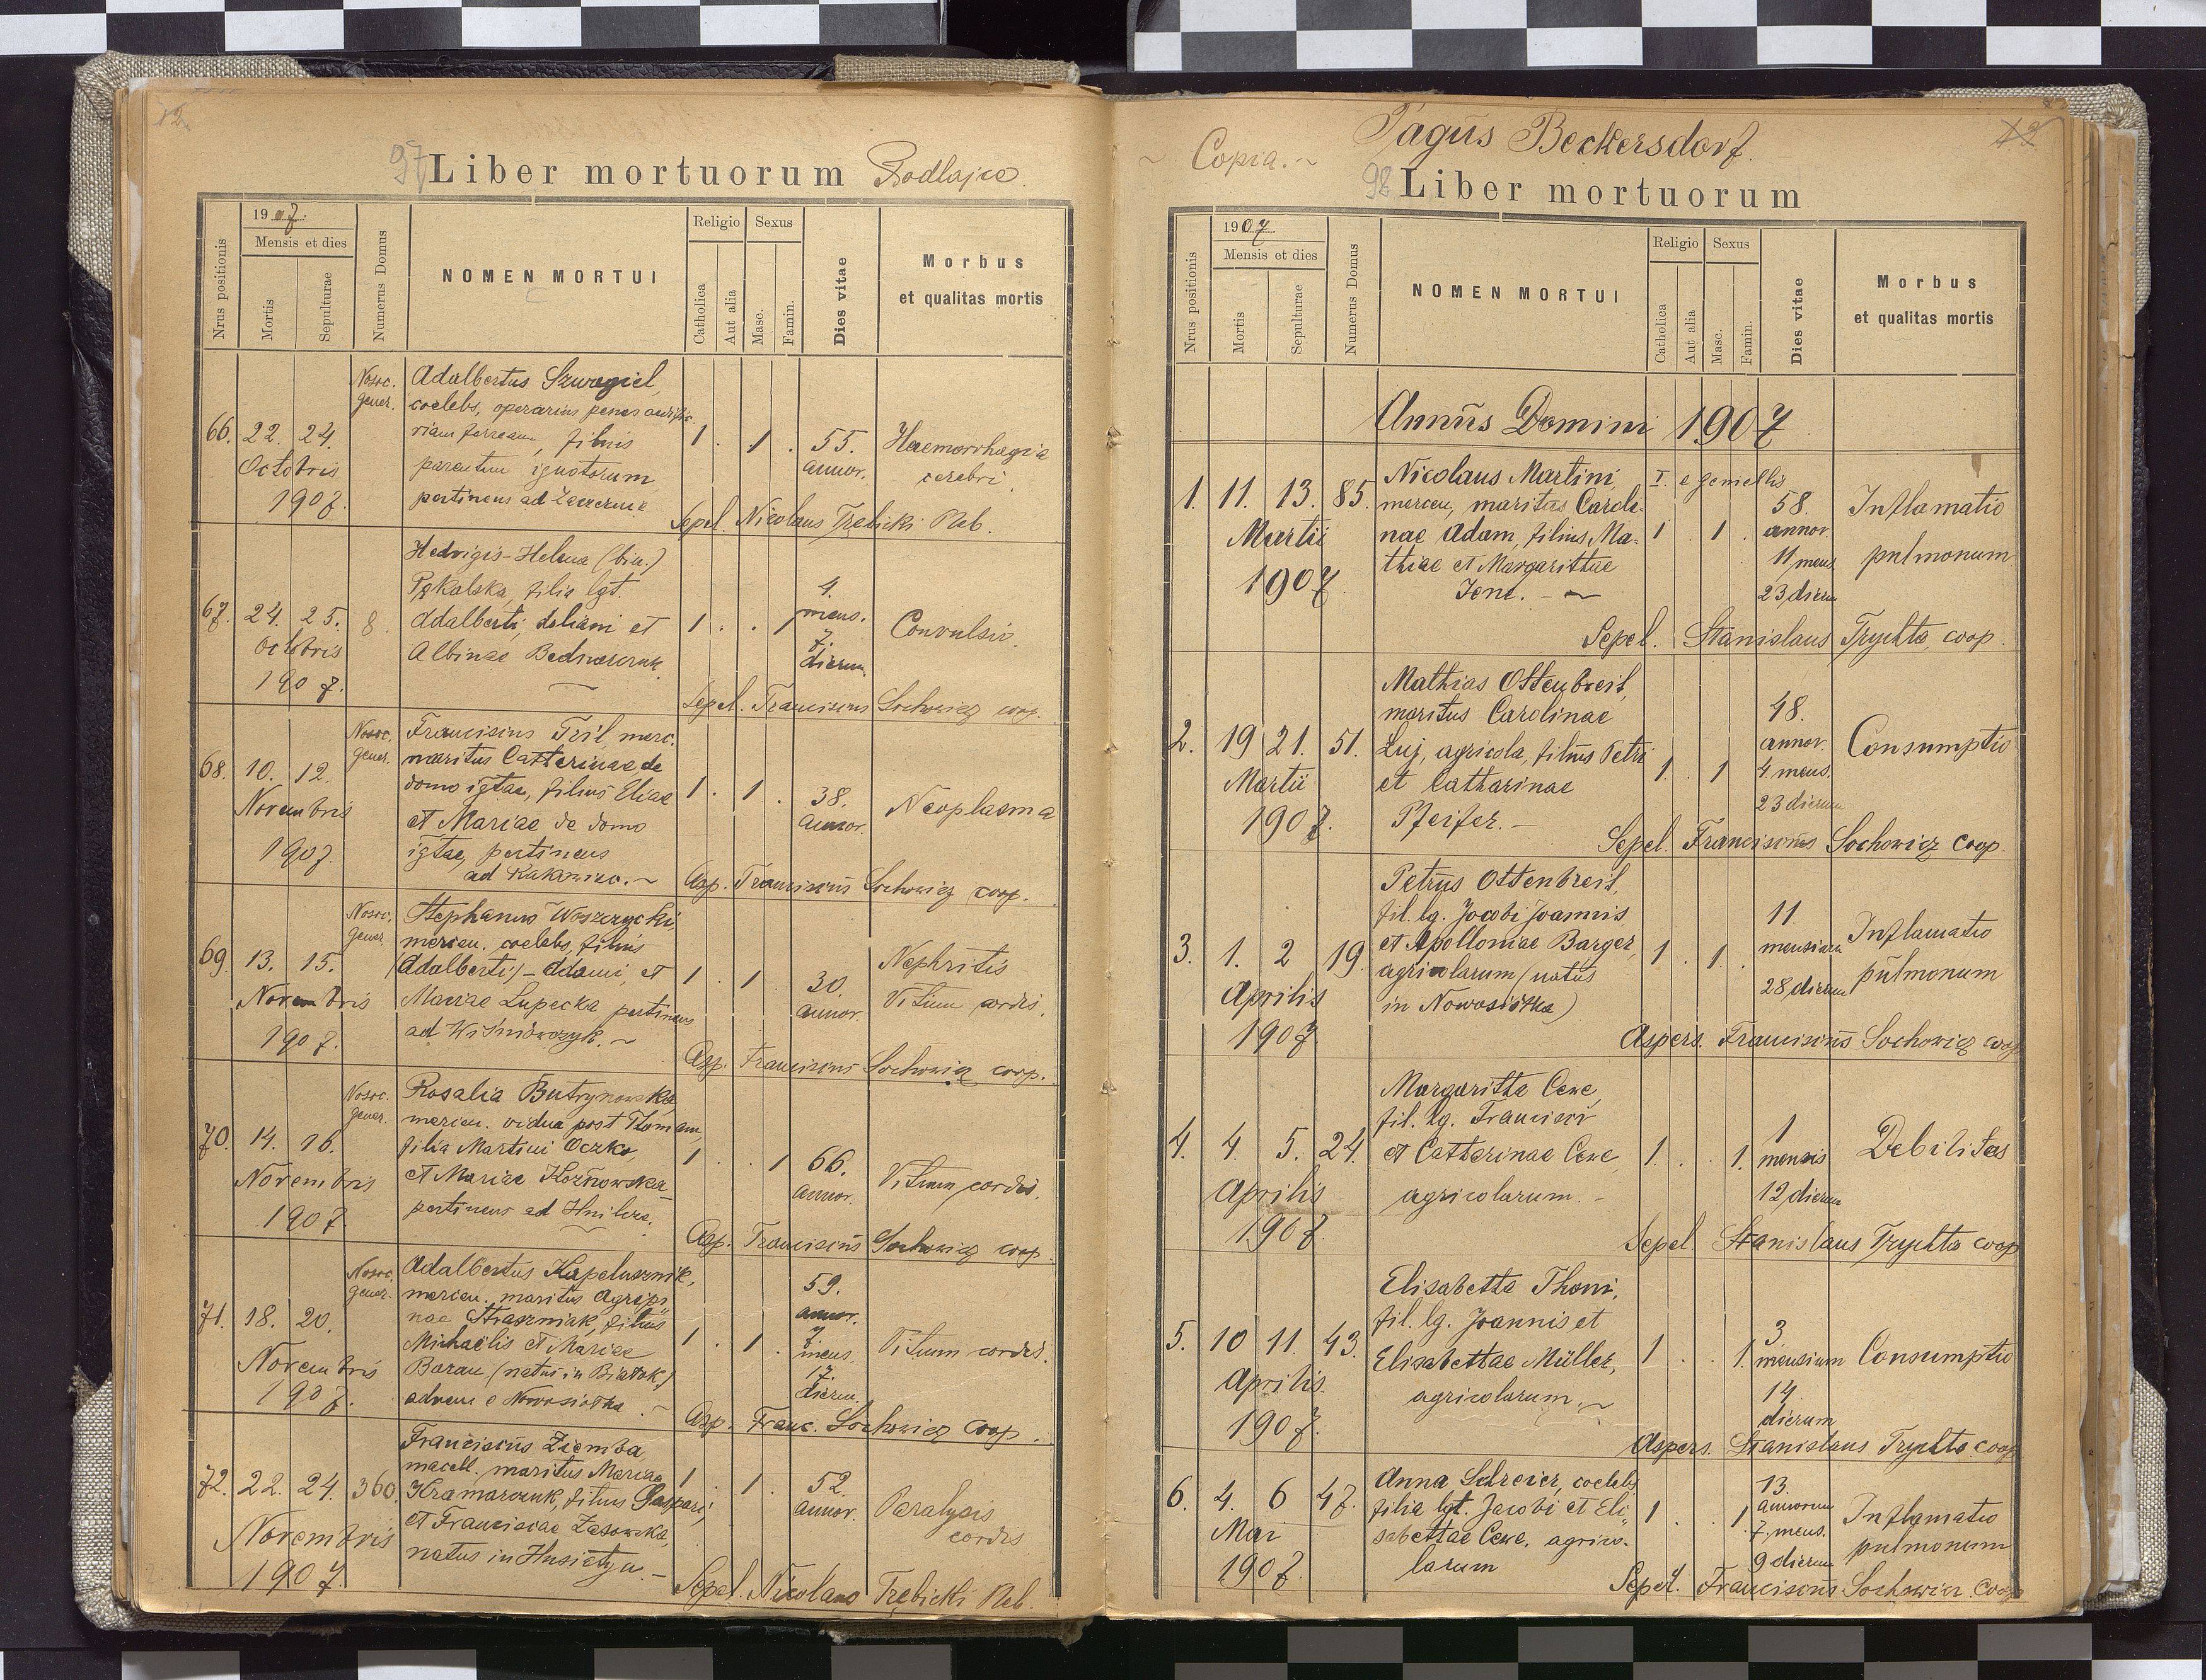 12
97 Liber mortuorum Podhajce
Nrus positionis
1907.
Mensis et dies
Mortis
Sepulturae
Numerus Domus
NOMEN MORTUI
Religio
Catholica
Aut alia
Sexus
Masc.
Famin.
Dies vitae
Morbus
et qualitas mortis
66. 22. 24.
Octobris
1907.
Nosoc.
gener.
Adalbertus Szwagiel,
coelebs, operarius penes
riam ferream, filius
parentum ignotorum
pertinens ad
1 . 1 . 55.
annor.
Haemorrhagia
cerebri.
Sepel. Nicolaus Trębicki Reb.
67. 24. 25. 8.
Octobris
1907.
Hedvigis-Helena (bin.)
Pękalska, filia lgt.
Adalberti, et
Albinae Bednarczuk
1 . . 1
4.
mens.
7.
dierum
Convulsio
Sepel. Franciscus Sochowicz coop.
68. 10. 12.
Novembris
1907.
Nosoc.
gener.
Franciscus Tril, merc.
maritus Catterinae de
domo igtae, filius Eliae
et Mariae de domo
igtae, pertinens
ad Kakowico. ~
1 . 1 . 38.
annor.
Neoplasma
Asp. Franciscus Sochowicz coop.
69. 13. 15.
Novembris
1907.
Nosoc.
gener.
Stephanus Woszczycki
mercen. coelebs, filius
(Adalberti) - Adami, et
Mariae Lupecka pertinens
ad Wiśniowczyk. ~
1 . 1 . 30.
annor.
Nephritis
Vitium cordis.
Asp. Franciscus Sochowicz coop.
70. 14. 16.
Novembris
1907.
Nosoc.
gener.
Rosalia Butrynowska
mercen. vidua post Thomam,
filia Martini Oczko,
et Mariae Kozńowska
pertinens ad Hnilcze.
1 . . 1 66.
annor.
Vitium cordis.
Asp. Franciscus Sochowicz coop.
71. 18. 20.
Novembris
1907.
Nosoc.
gener.
Adalbertus Kapelusznik,
mercen. maritus Agripi„
nae Straszniak, filius
Michaëlis et Mariae
Baran (natus in Białok.)
advena e Nowosiołka. ~
1 . 1 .
59.
annor.
7.
mens.
17.
dierum.
Vitium cordis.
Asp. Franc. Sochowicz coop.
72. 22. 24. 360.
Novembris
1907.
Franciscus Ziemba
macell. maritus Mariae
Kramarczuk, filius Gaspari,
et Franciscae Zasowska,
natus in Husiatyn. -
1 . 1 . 52.
annor.
Paralysis
cordis
Sepel. Nicolaus Trębicki Reb.
12
Pagus Beckersdorf.
~ Copia. ~
98 Liber mortuorum
Nrus positionis
1907
Mensis et dies
Mortis
Sepulturae
Numerus Domus
NOMEN MORTUI
Religio
Catholica
Aut alia
Sexus
Masc.
Famin.
Dies vitae
Morbus
et qualitas mortis
Annus Domini 1907
1. 11. 13. 85.
Martii
1907.
Nicolaus Martini,
mercen, maritus Caroli-
nae Adam, filius Ma=
thiae et Margarithae
Jene. - ~
I e gemellis
1 . 1 .
58.
annor.
11 mens
23 dierum
Inflamatio
pulmonum
Sepel. Stanislaus Trychta, coop.
2. 19 21. 51.
Martii
1907.
Mathias Ottenbreit,
maritus Carolinae
Luj, agricola, filius Petri
et Catharinae
Pfeifer. -
1. . 1
48.
annor.
4 mens.
23 dierum
Consumptio
Sepel. Franciscus Sochowicz coop.
3. 1. 2 19.
Aprilis
1907.
Petrus Ottenbreit,
fil. lg. Jacobi Joannis
et Apolloniae Barger,
agricolarum (natus
in Nowosiółka)
1 . 1. .
11
mensium
28 dierum
Inflamatio
pulmonum
Aspers. Franciscus Sochowicz coop
4. 4. 5. 24.
Aprilis
1907
Margaritha Cewe,
fil. lg. Francisci
et Catterinae Cewe
agricolarum. -
1. . . 1.
1
mensis
12 dierum
Debilitas
Sepel. Stanislaus Trychta coop
5. 10 11. 43.
Aprilis.
1907.
Elisabetta Thoni,
fil. lg. Joannis et
Elisabettae Müller,
agricolarum. ~
1 . . 1.
3
mensium
14
dierum
Consumptio
Aspers. Stanislaus Trychta coop
6. 4. 6 47.
Mai
1907.
Anna Schreier, coelebs
filia lgt. Jacobi et Eli„
sabettae Cewe, agrico-
larum
1 . . 1
13.
annorum
7. mens.
9 dierum
Inflamatio
pulmonum
Sepel. Franciscus Sochowicz coop